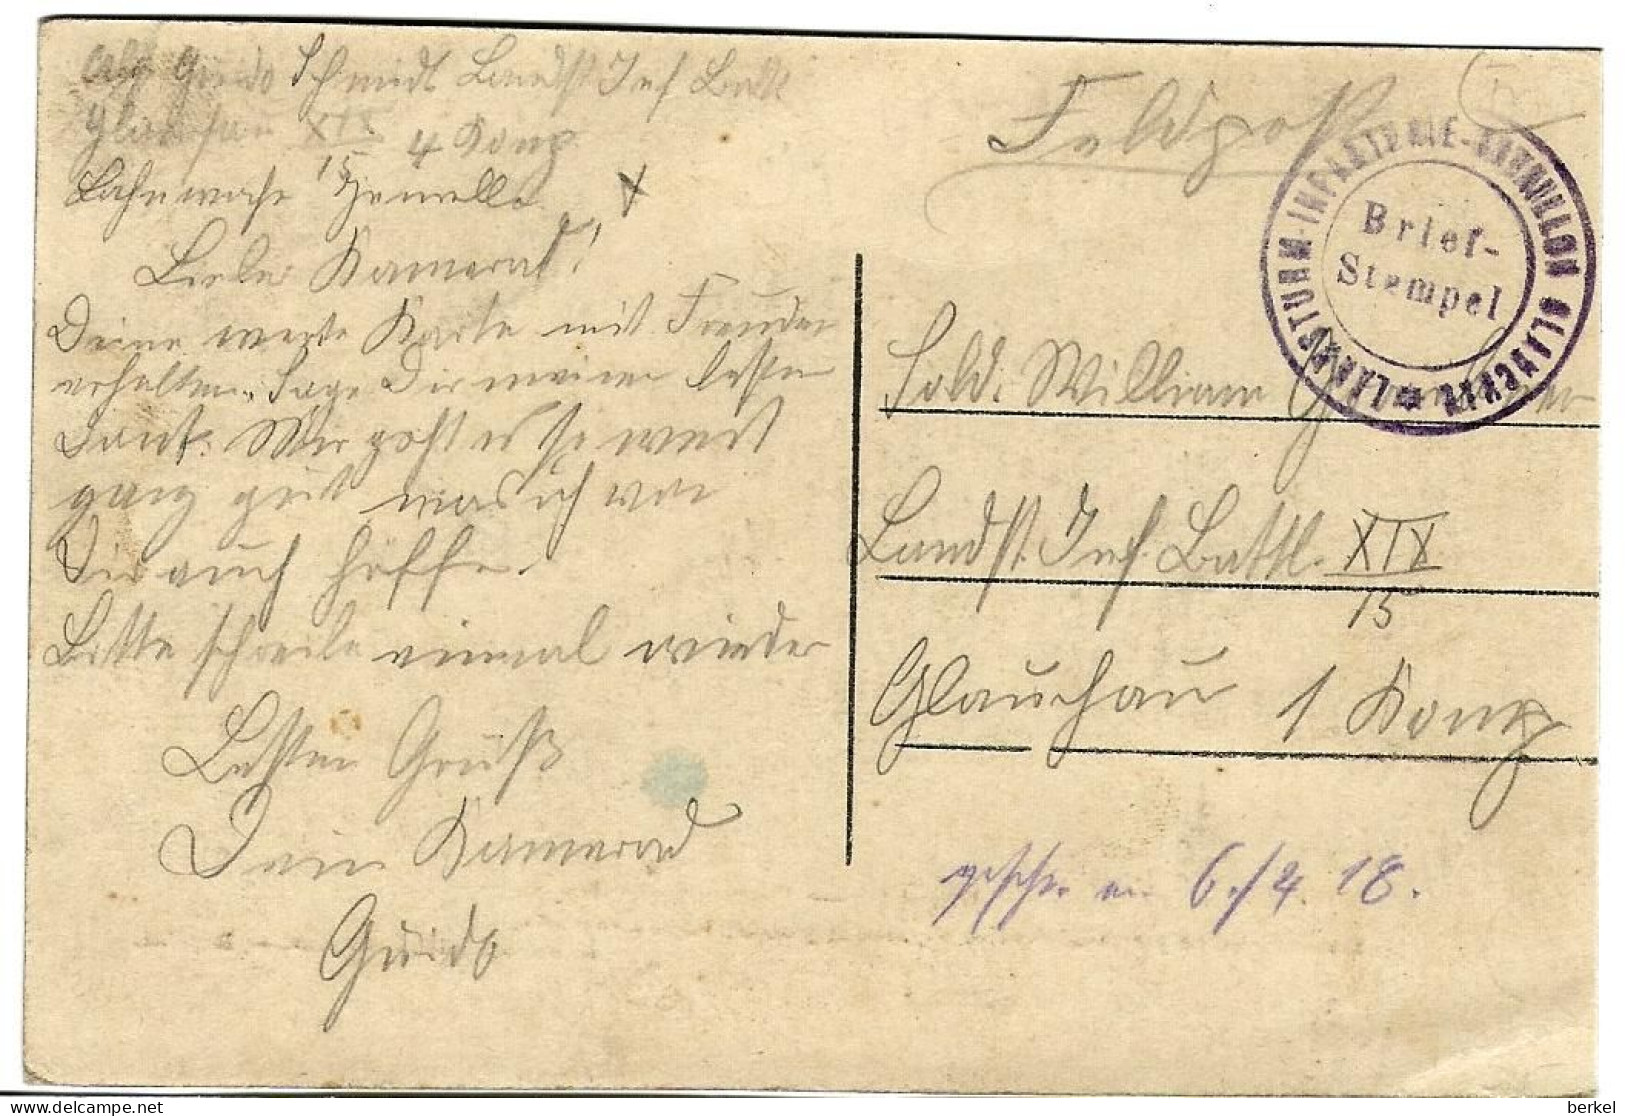 Guido Schmidt Landst Inf Batl
Glauchau XIX
15 4 Komp
Bahnwache
Lieber Kamerad!
Deine werte Karte mit Freuden
erhalten, sage Dir meinen besten
Dank. Mir geht es so weit
ganz gut was ich von
Dir auch hoffe.
Bitte schreibe einmal wieder
Besten Gruß
Dein Kamerad
Guido
Feldpost
LANDSTURM-INFANTERIE-BATAILLON GLAUCHAU
Brief-
Stempel
Sold. William
Landst. Inf. Battl. XIX
15
Glauchau 1 Komp
geschr. am 6./4. 18.
berkel